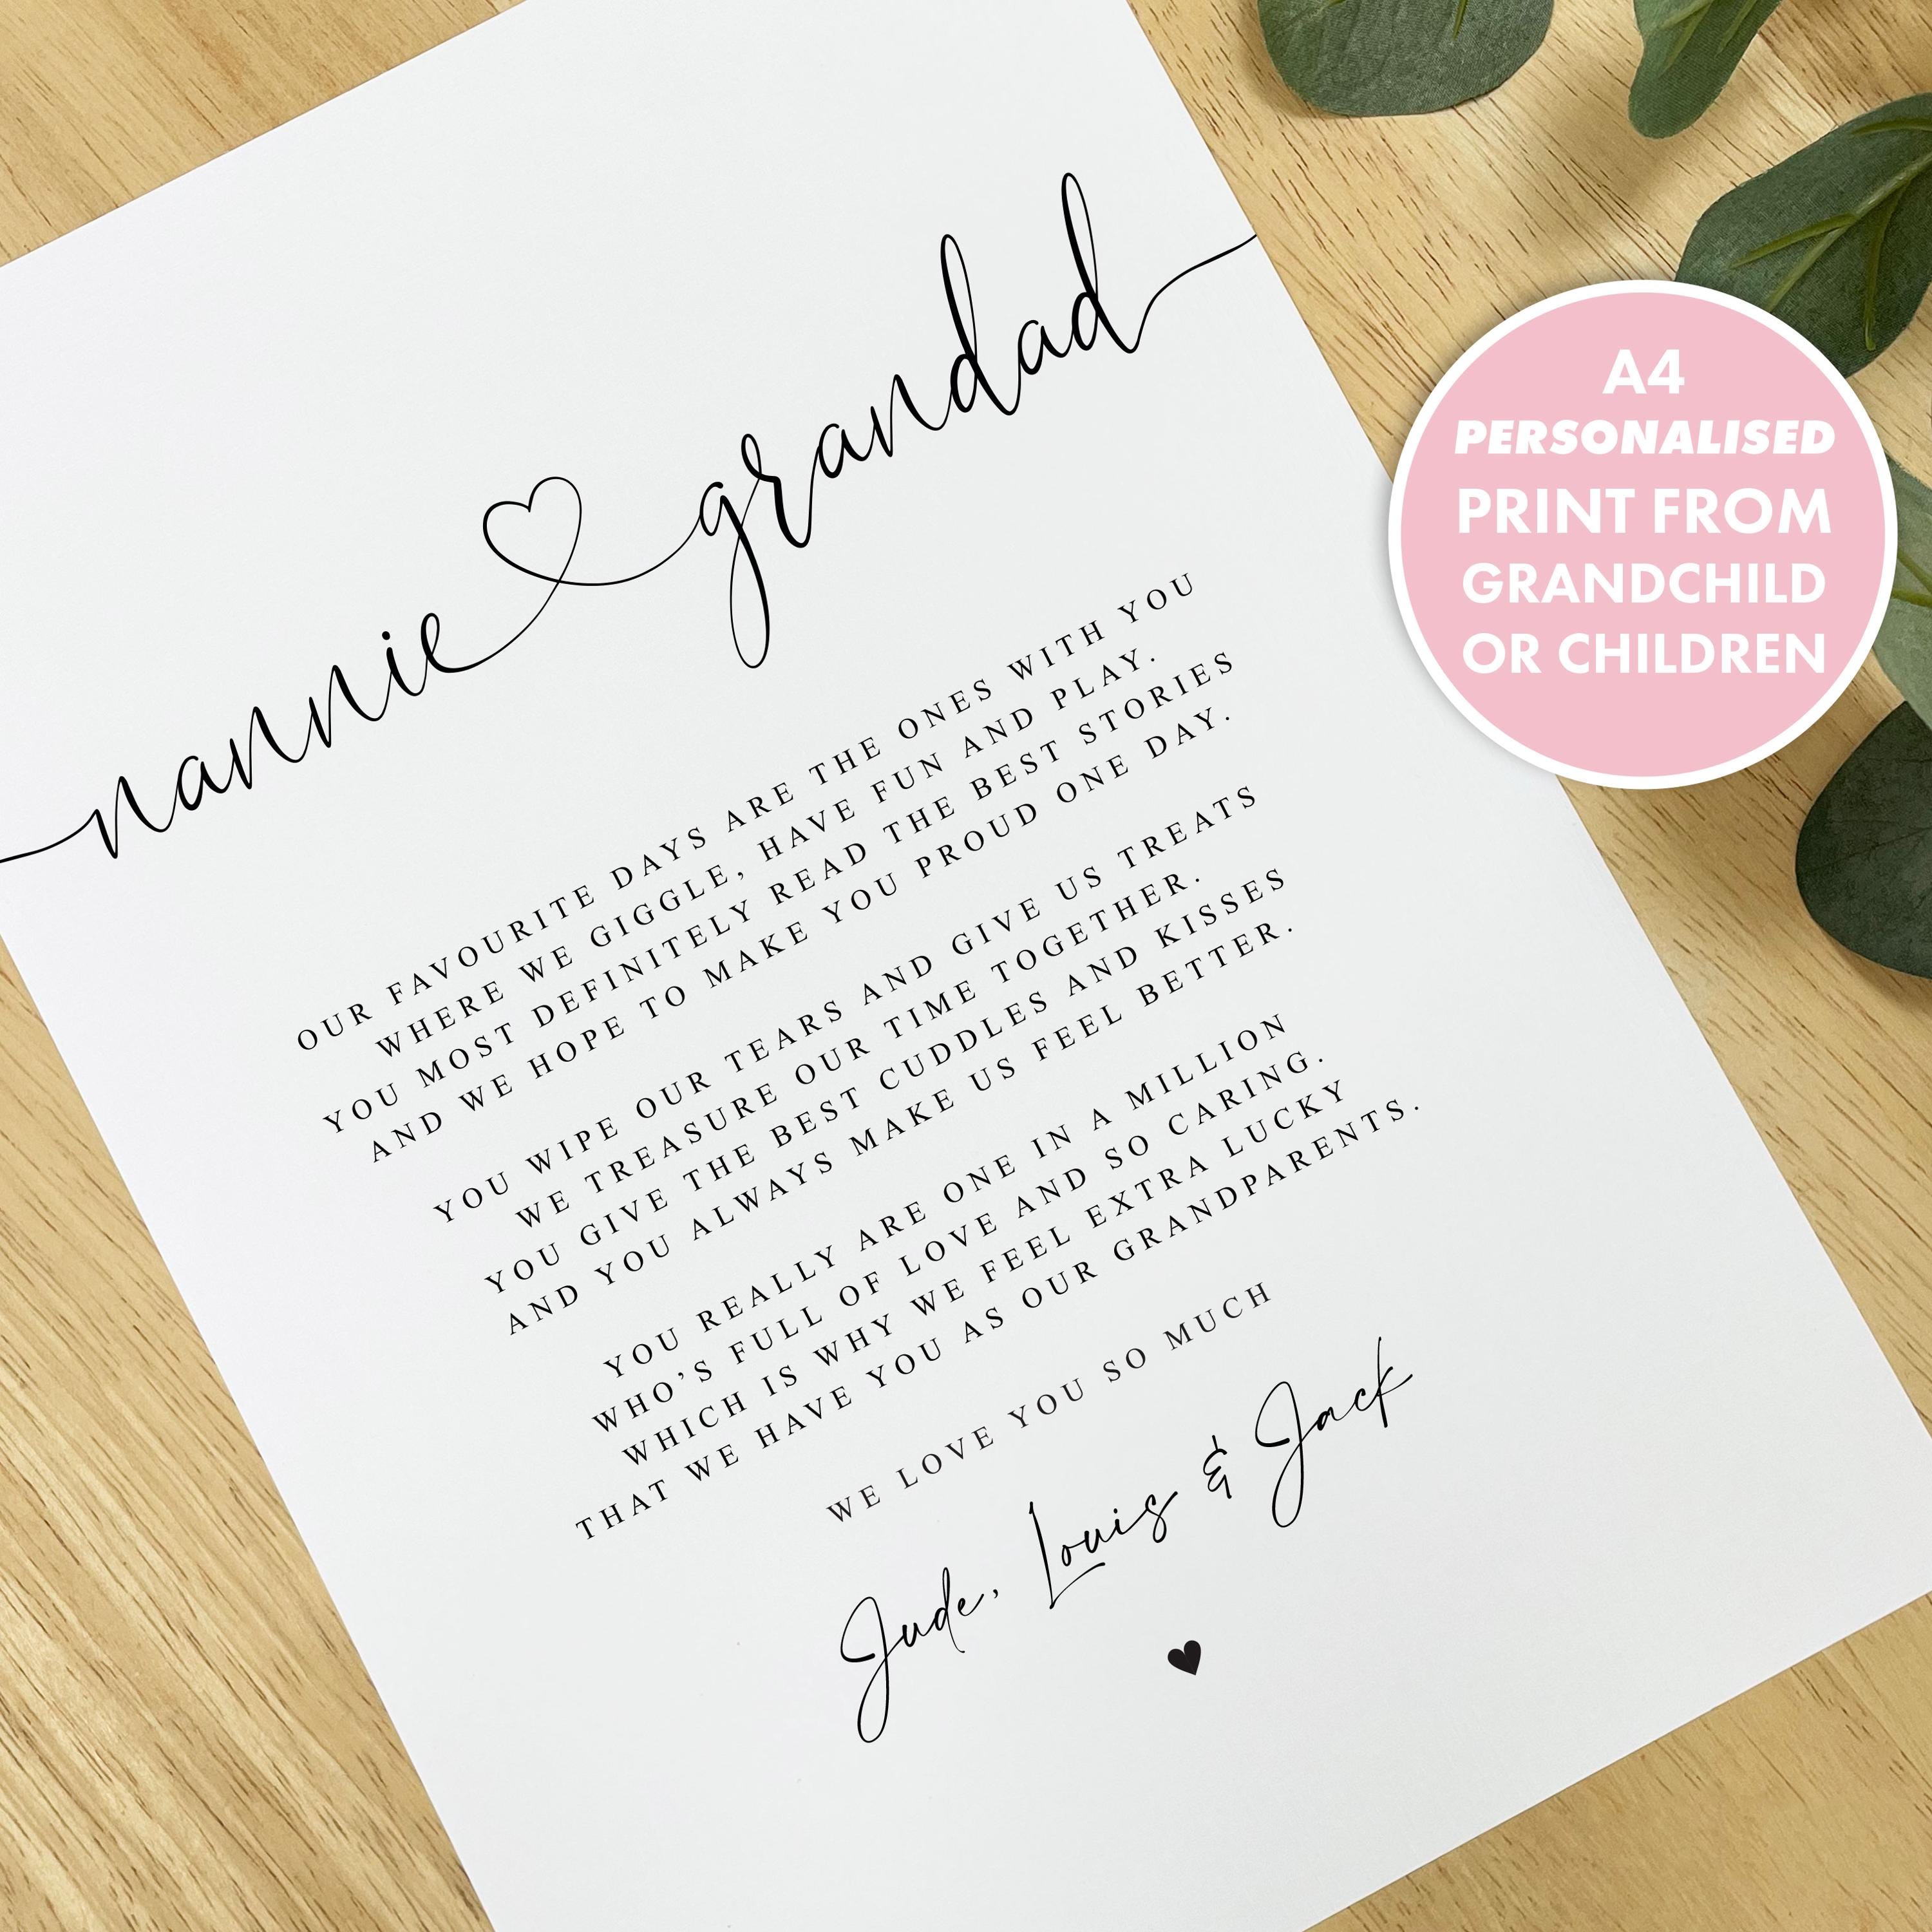 nannie grandad
OUR FAVOURITE DAYS ARE THE ONES WITH YOU
WHERE WE GIGGLE, HAVE FUN AND PLAY.
YOU MOST DEFINITELY READ THE BEST STORIES
AND WE HOPE TO MAKE YOU PROUD ONE DAY.
YOU WIPE OUR TEARS AND GIVE US TREATS
WE TREASURE OUR TIME TOGETHER.
YOU GIVE THE BEST CUDDLES AND KISSES
AND YOU ALWAYS MAKE US FEEL BETTER.
YOU REALLY ARE ONE IN A MILLION
WHO'S FULL OF LOVE AND SO CARING.
WHICH IS WHY WE FEEL EXTRA LUCKY
THAT WE HAVE YOU AS OUR GRANDPARENTS.
WE LOVE YOU SO MUCH
Jude, Louis & Jack
A4
PERSONALISED
PRINT FROM
GRANDCHILD
OR CHILDREN